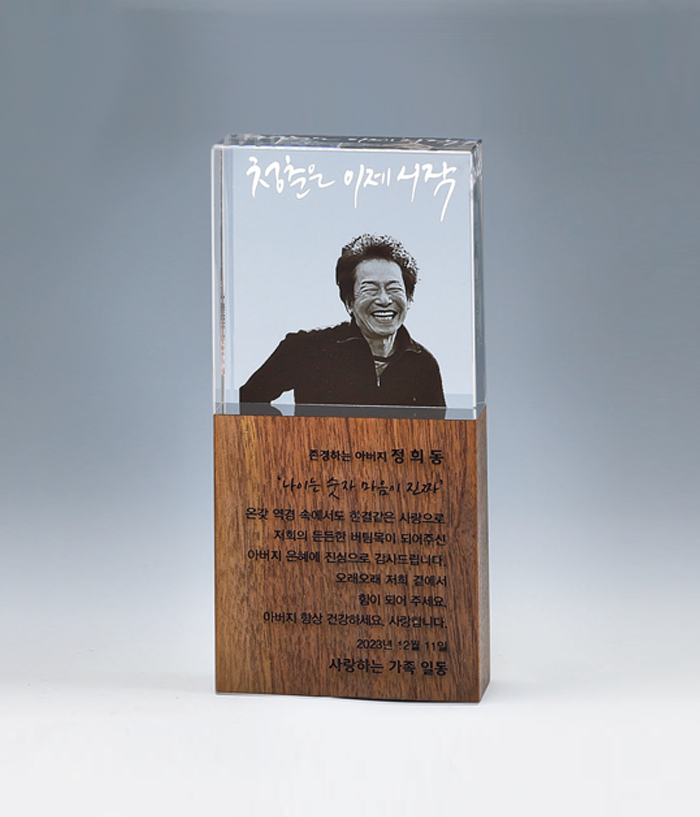 청춘은 이제 시작
존경하는 아버지 정희동
'나이는 숫자 마음이 진짜'
온갖 역경 속에서도 한결같은 사랑으로
저희의 든든한 버팀목이 되어주신
아버지 은혜에 진심으로 감사드립니다.
오래오래 저희 곁에서
힘이 되어 주세요.
아버지 항상 건강하세요. 사랑합니다.
2023년 12월 11일
사랑하는 가족 일동